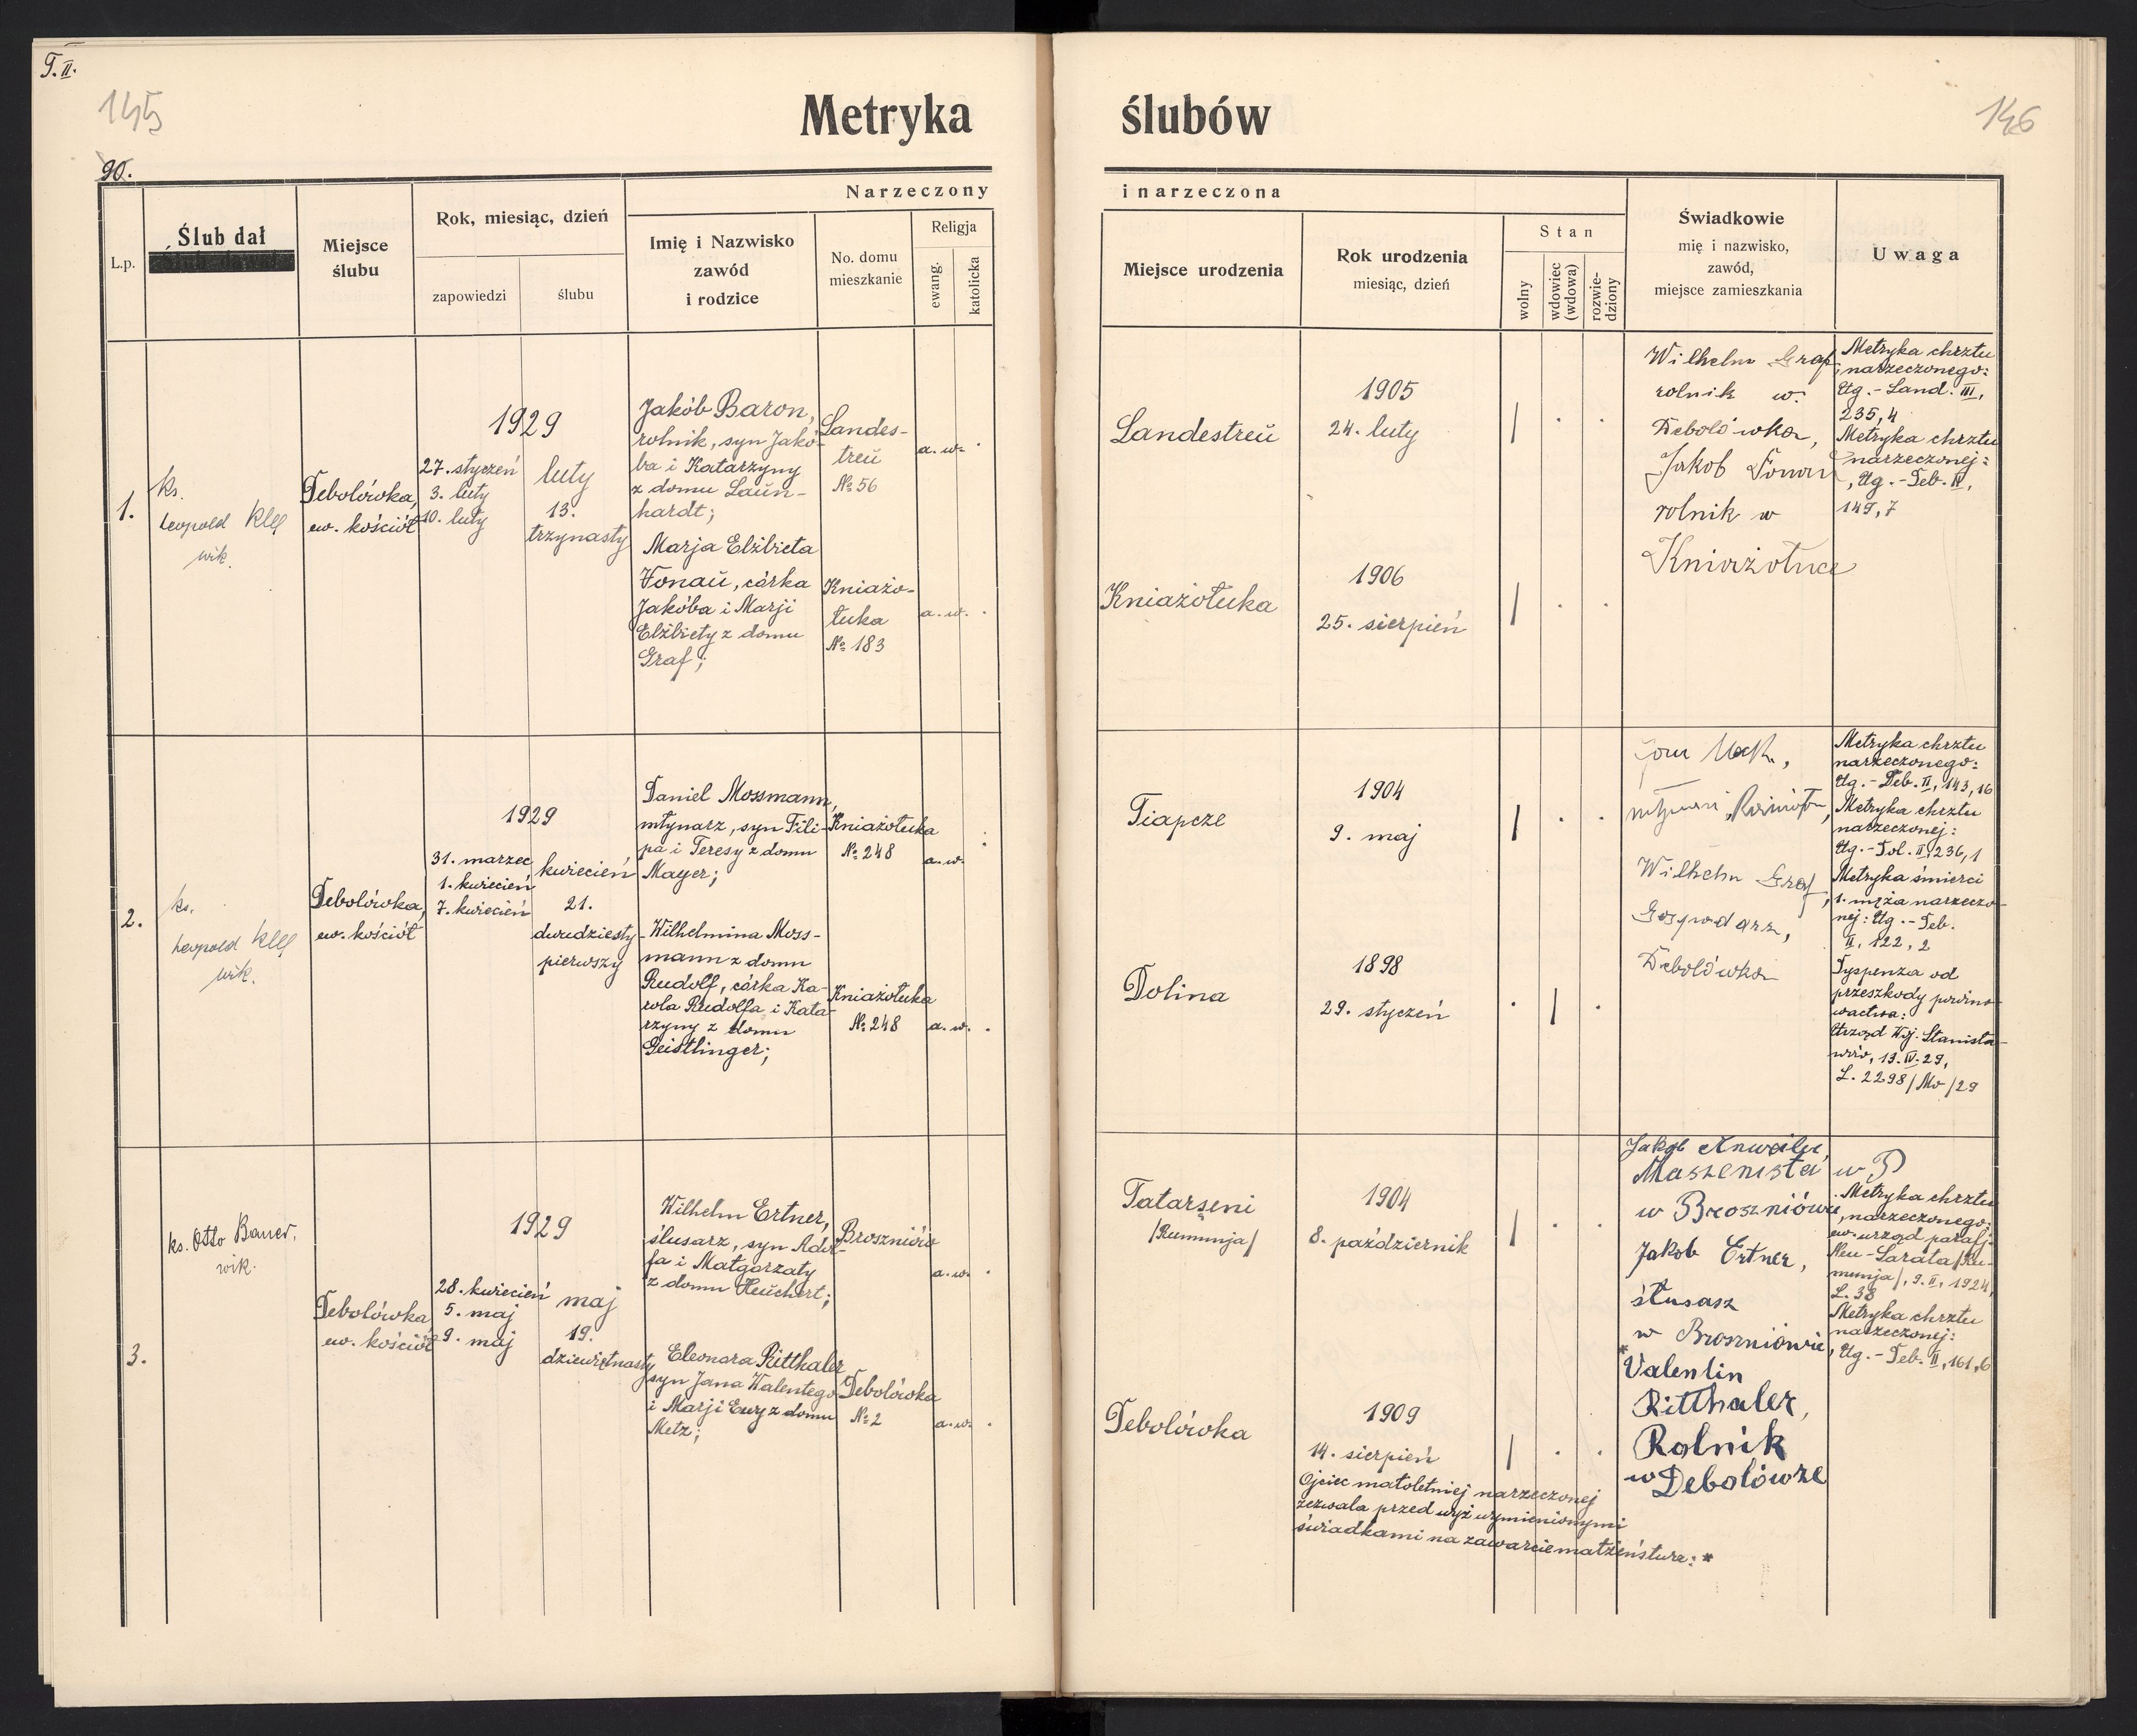 T. II.
145
Metryka
ślubów
146
90.
L.p.
Ślub dał
Miejsce
ślubu
Rok, miesiąc, dzień
zapowiedzi
ślubu
Narzeczony
Imię i Nazwisko
zawód
i rodzice
No. domu
mieszkanie
Religja
ewang.
katolicka
i narzeczona
Miejsce urodzenia
Rok urodzenia
miesiąc, dzień
Stan
wolny
wdowiec
(wdowa)
rozwie-
dziony
Świadkowie
mię i nazwisko,
zawód,
miejsce zamieszkania
Uwaga
1.
ks.
Leopold Klee
wik.
Debolówka,
ew. kościół
1929
27. styczeń
3. luty
10. luty
luty
13.
trzynasty
Jakób Baron,
rolnik, syn Jakó-
ba i Katarzyny
z domu Laun-
hardt;
Landes-
treŭ
№ 56
a. w.
Marja Elżbieta
Vonaŭ, córka
Jakóba i Marji
Elżbiety z domu
Graf;
Kniażo-
łuka
№ 183
a. w.
Landestreŭ
1905
24. luty
Kniażołuka
1906
25. sierpień
Wilhelm Graf,
rolnik w
Debolówka,
Jakob
rolnik w
Kniażołuce
Metryka chrztu
narzeczonego:
Ug. - Land. III,
235,4
Metryka chrztu
narzeczonej:
Ug. - Deb. II,
149,7
2.
ks.
Leopold Klee
wik.
Debolówka,
ew. kościół
1929
31. marzec
1. kwiecień
7. kwiecień
kwiecień
21.
dwudziesty
pierwszy
Daniel Mossmann,
młynarz, syn Fili-
pa i Teresy z domu
Mayer;
Kniażołuka
№ 248
a. w.
Wilhelmina Moss-
mann z domu
Rudolf, córka Ka-
rola Rudolfa i Kata-
rzyny z domu
Geistlinger;
Kniażołuka
№ 248
a. w.
Tiapcze
1904
9. maj
Dolina
1898
29. styczeń
Wilhelm Graf,
Gospodarz,
Debolówka
Metryka chrztu
narzeczonego:
Ug. - Deb. II, 143, 16
Metryka chrztu
narzeczonej:
Ug. - Dol. II, 236, 1
Metryka śmierci
1. męża narzeczo-
nej: Ug. - Deb.
II, 122, 2
Dyspenza od
przeszkody powino-
wactwa:
Urząd Woj. Stanisła-
wów, 19. IV. 29,
L. 2298/Mo/29
3.
ks. Otto Bauer,
wik.
Debolówka
ew. kościół
1929
28. kwiecień
5. maj
9. maj
maj
19.
dziewiętnasty
Wilhelm Ertner,
ślusarz, syn Adol-
fa i Małgorzaty
z domu Heŭchert;
Broszniów
a. w.
Eleonora Ritthaler
syn Jana Walentego
i Marji Ewy z domu
Metz;
Debolówka
№ 2
a. w.
Tatarseni
/Rumunja/
1904
8. październik
Debolówka
1909
14. sierpień
Ojciec małoletniej narzeczonej
zezwala przed wyż wymienionymi
świadkami na zawarcie małżeństwa: *
Jakob
Maszenista w P
w Broszniówie,
Jakob Ertner,
ślusasz
w Broszniowie,
* Valentin
Ritthaler,
Rolnik
w Debolówze
Metryka chrztu
narzeczonego:
ew. urząd parafj.
Neu-Sarata /Ru-
munja/, 9. II, 1924,
L. 38
Metryka chrztu
narzeczonej:
Ug. - Deb. II, 161, 6